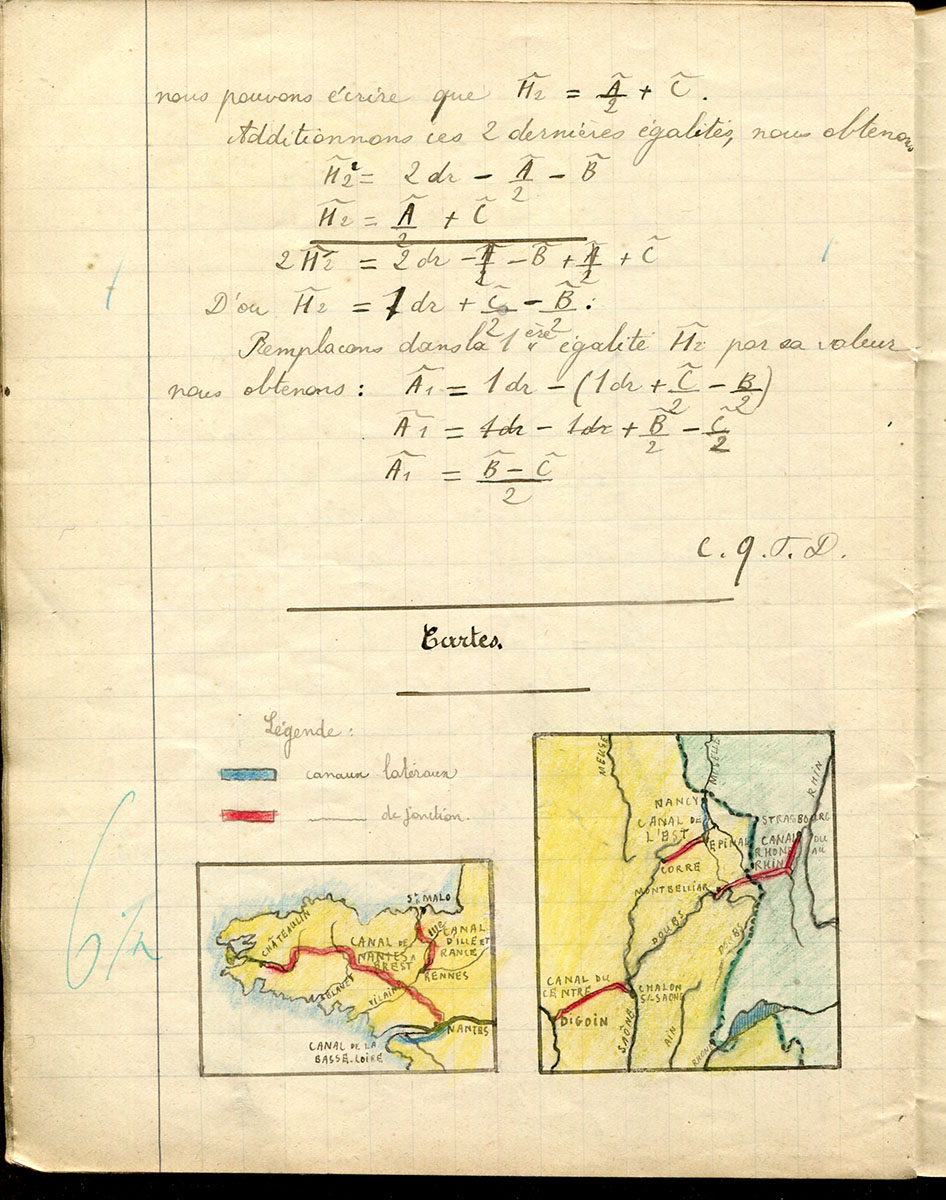 nous pouvons écrire que Ĥ2 = Â/2 + Ĉ.
Additionnons ces 2 dernières égalités, nous obtenons
Ĥ2 = 2 dr - Â/2 - B̂
Ĥ2 = Â/2 + Ĉ
2Ĥ2 = 2 dr - Â/2 - B̂ + Â/2 + Ĉ
D'ou Ĥ2 = 1 dr + Ĉ/2 - B̂/2.
Remplacons dans la 1ère égalité Ĥ2 par sa valeur
nous obtenons : Â1 = 1 dr - (1 dr + Ĉ/2 - B̂/2)
Â1 = 1 dr - 1 dr + B̂/2 - Ĉ/2
Â1 = B̂ - Ĉ/2
C. Q. F. D.
Cartes.
Légende :
canaux latéraux
de jonction.
6
ST MALO
ILLE
CANAL
D'ILLE ET
RANCE
RENNES
CHÂTEAULIN
CANAL DE
NANTES A
BREST
BLAVET
VILAINE
NANTES
CANAL DE LA
BASSE-LOIRE
MEUSE
MOSELLE
RHIN
NANCY
CANAL DE
L'EST
EPINAL
STRASBOURG
CANAL DU
RHONE AU
RHIN
CORRE
MONTBELLIAR
DOUBS
DOUBS
CANAL DU
CENTRE
CHALON
S/-SAONE
DIGOIN
SAÔNE
AIN
RHONE